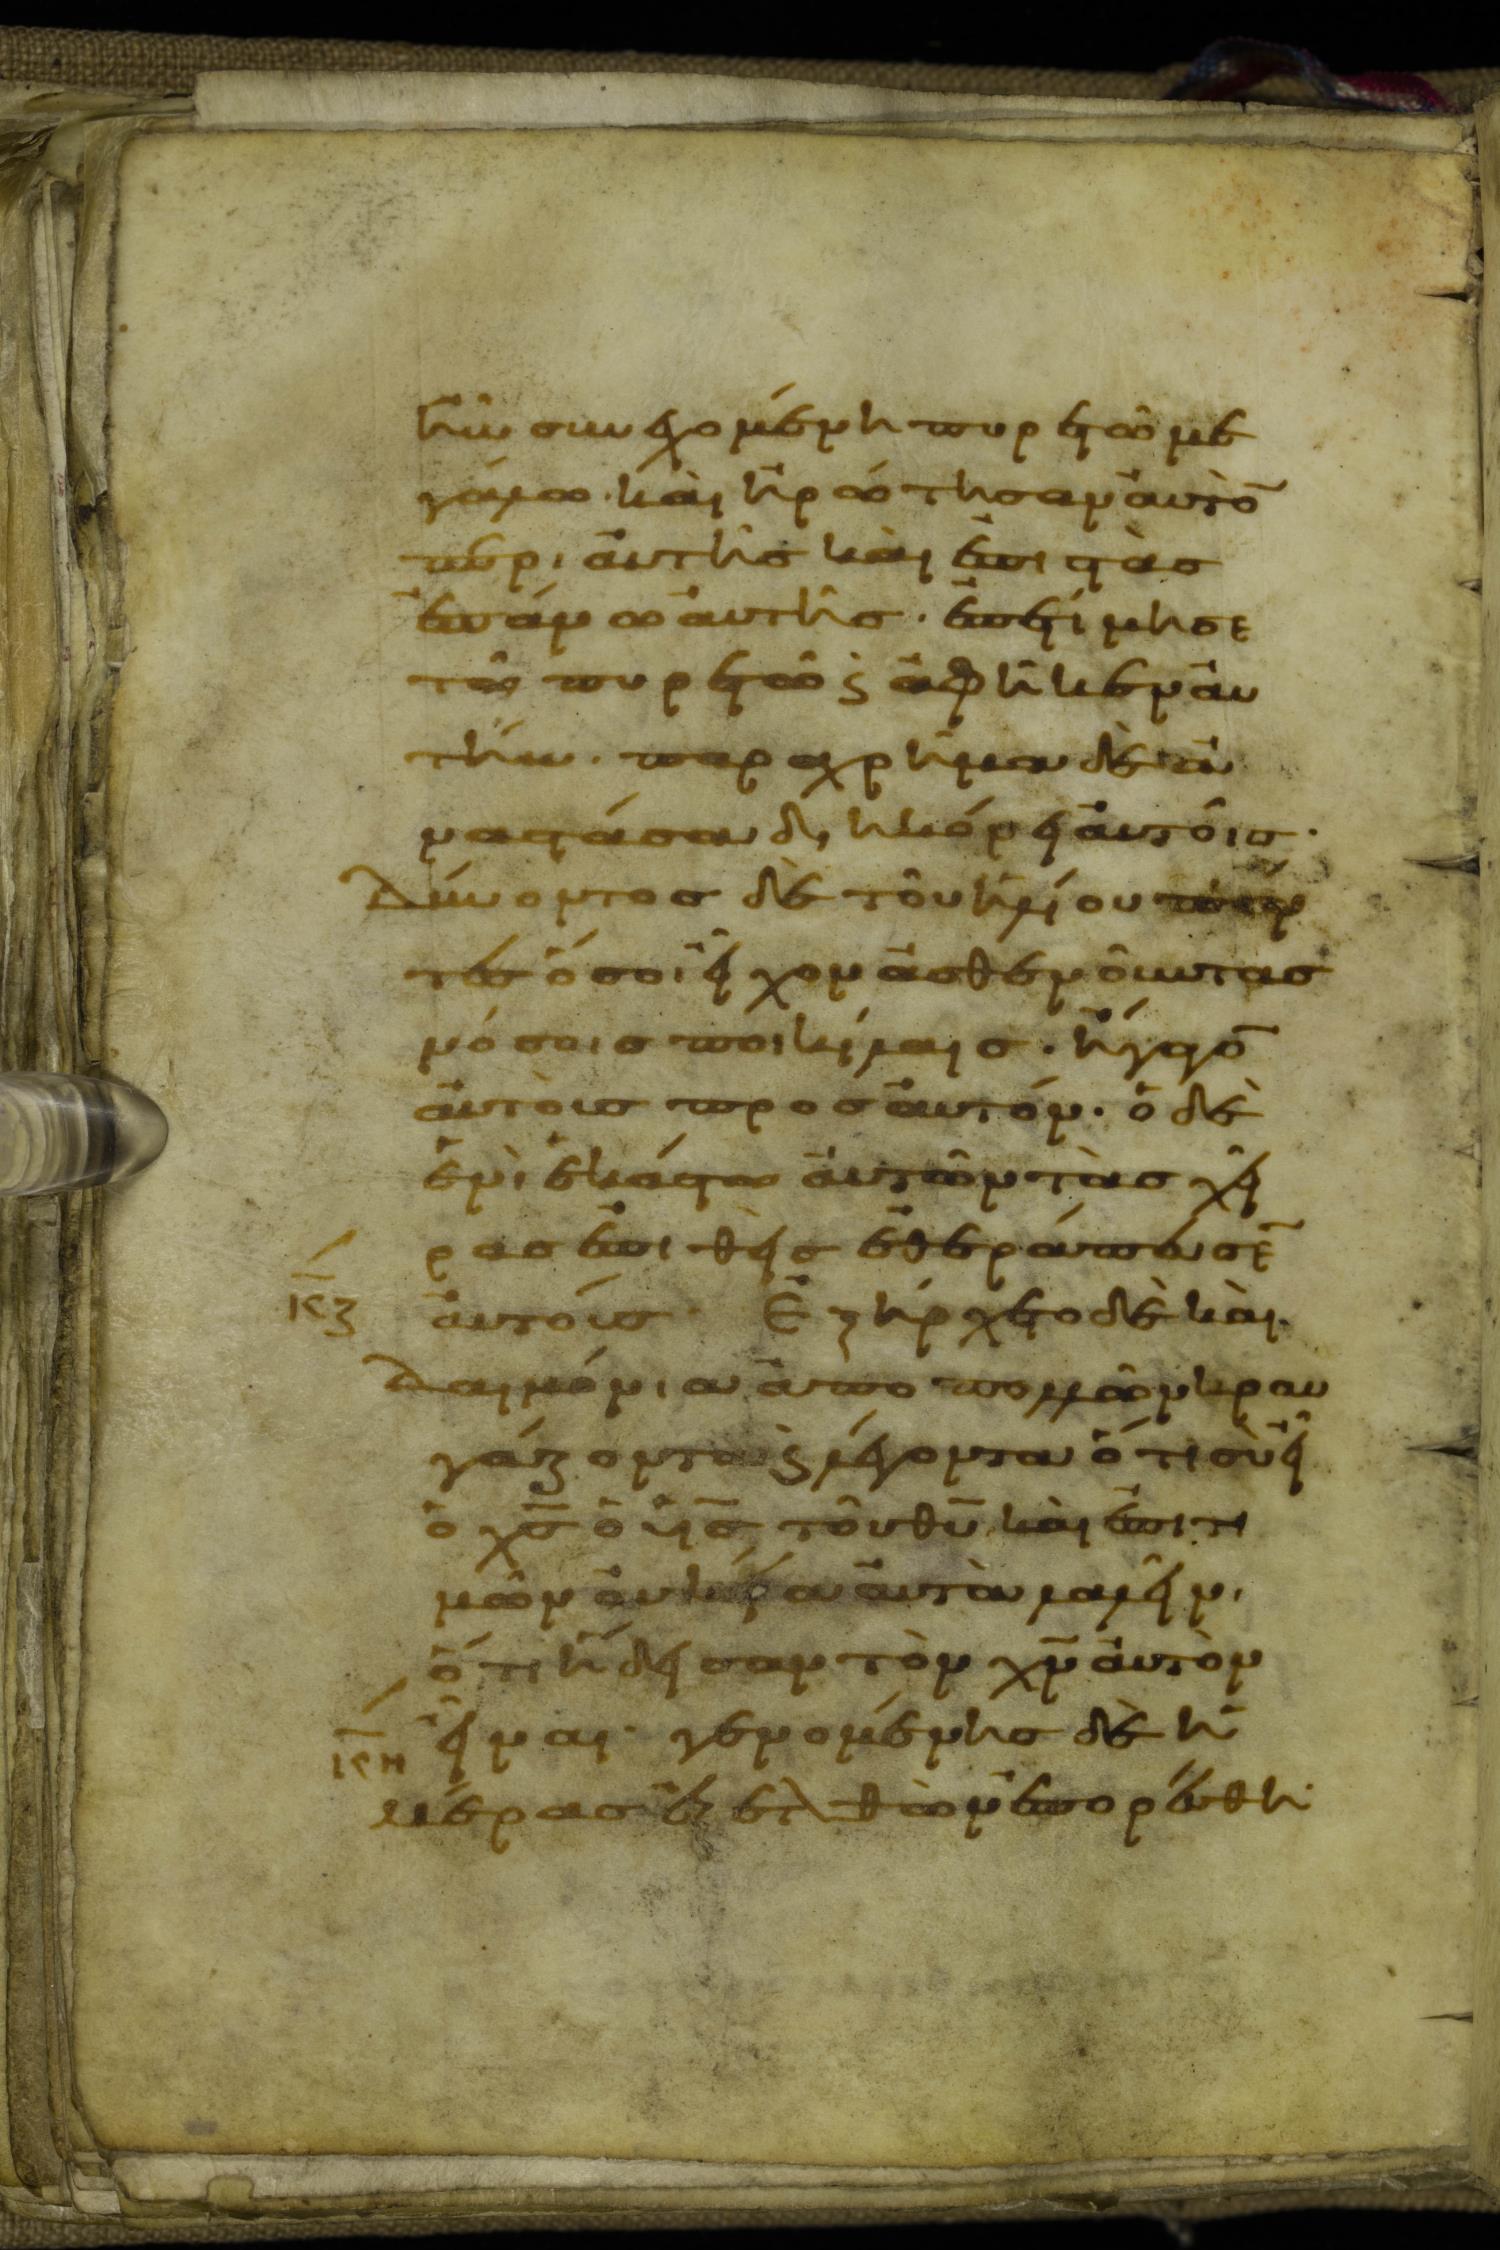 ἦν συνεχομένη πυρετῶ με
γάλω· καὶ ἠρώτησαν αὐτὸ̅
περι αὐτῆς καὶ ἐπιστὰς
ἐπάνω αὐτῆς· ἐπετίμησε
τῶ πυρετῶ ϗ ἀφῆκεν αὐ
τήν· παραχρῆμα δὲ ἀ
ναστάσα διηκόνει αὐτοῖς·
Δύνοντος δὲ τοῦ ἡλίου πάν
τες ὅσοι εἶχον ἀσθενοῦντας
νόσοις ποικίλαις· ἤγαγο̅
αὐτοὺς προς αὐτόν· ὁ δὲ
ἑνὶ ἑκάστω αὐτῶν τὰς χεῖ
ρας ἐπιθεὶς ἐθεράπευσε̅
κζ αὐτούς· Ἐξήρχετο δὲ καὶ
Δαιμόνια ἀπο πολλῶν κραυ
γάζοντα ϗ λέγοντα ὅτι σὺ εἶ
ὁ χ̅ς̅ ὁ υἱ̅ς̅ τοῦ θ̅υ̅ καὶ ἐπιτι
μῶν οὐκ εἴα αὐτὰ λαλεῖν,
ὅτι ἤδεισαν τὸν χ̅ν̅ αὐτὸν
κη εἶναι· γενομένης δὲ ἡ
μέρας ἐξελθὼν ἐπορεύθη